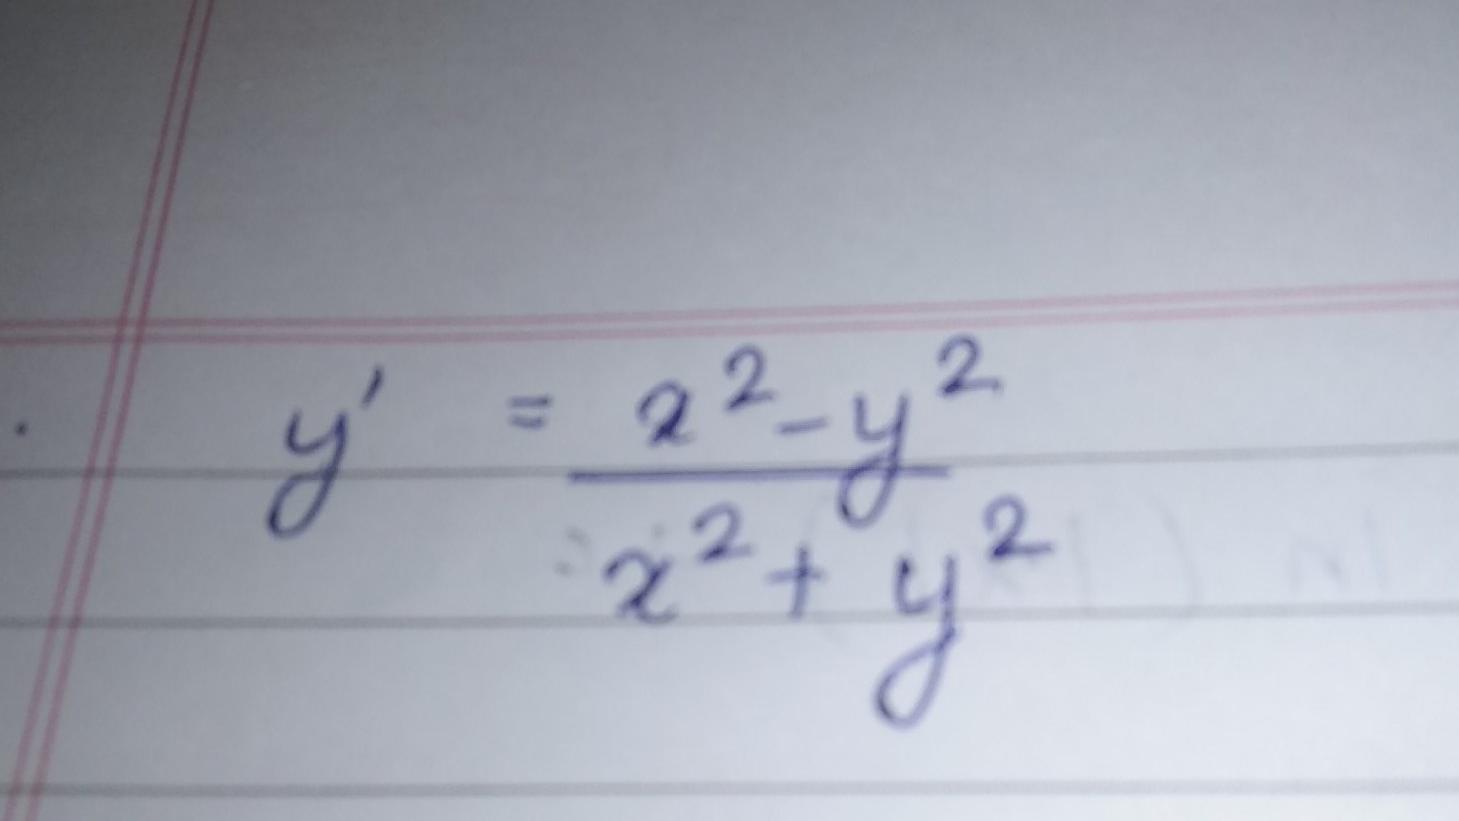 y' = x² - y²
x² + y²